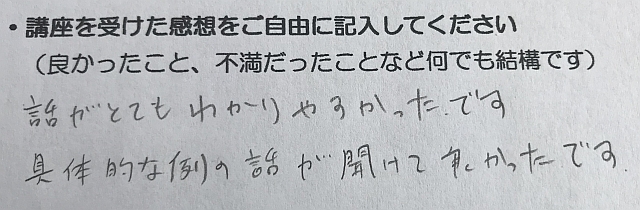 ・講座を受けた感想をご自由に記入してください
（良かったこと、不満だったことなど何でも結構です）
話がとてもわかりやすかった.です
具体的な例の話が聞けて良かったです.